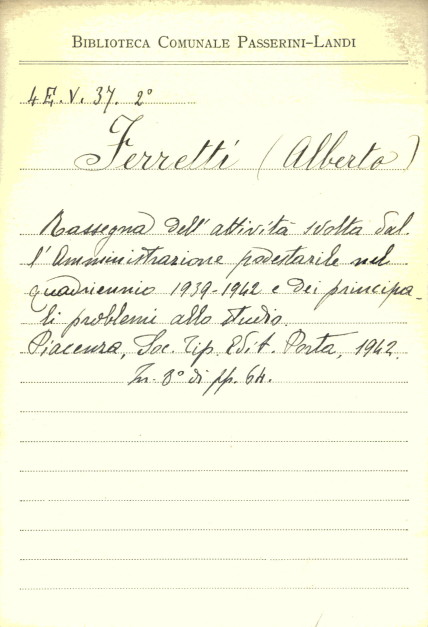 BIBLIOTECA COMUNALE PASSERINI-LANDI
4 E. V. 37. 2°
Ferretti (Alberto)
Rassegna dell'attività svolta dal-
l'Amministrazione podestarile nel
quadriennio 1939-1942 e dei principa-
li problemi allo studio.
Piacenza, Soc. Tip. Edit. Porta, 1942.
In. 8° di pp. 64.